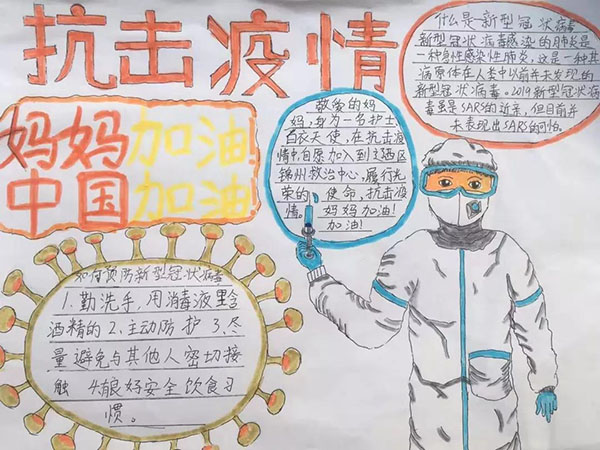 抗击疫情
妈妈加油!
中国加油!
什么是新型冠状病毒
新型冠状病毒感染的肺炎是
一种急性感染性肺炎,这是一种其
病原体在人类中以前并未发现的
新型冠状病毒。2019新型冠状病
毒虽是SARS的近亲,但目前并
未表现出SARS的可怕。
敬爱的妈
妈,身为一名护士
白衣天使,在抗击疫
情中自原加入到辽西区
锦州救治中心,履行光
荣的使命,抗击疫
情。妈妈加油!
加油!
如何预防新型冠状病毒
1.勤洗手,用消毒液里含
酒精的 2、主动防护 3、尽
量避免与其他人密切接
触 4、良好安全饮食习
惯。